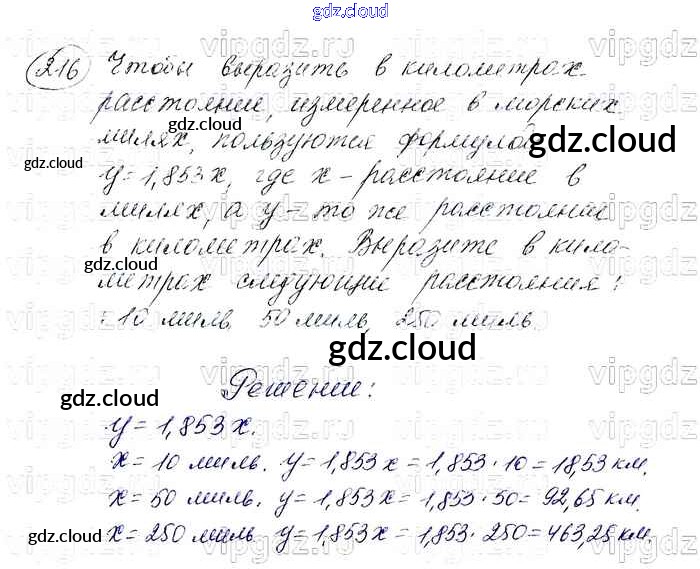 gdz.cloud
216 Чтобы выразить в километрах
расстояние, измеренное в морских
милях, пользуются формулой
y = 1,853x, где x – расстояние в
милях, а y – то же расстояние
в километрах. Выразите в кило-
метрах следующие расстояния:
10 миль, 50 миль, 250 миль.
Решение:
y = 1,853x.
x = 10 миль. y = 1,853x = 1,853 · 10 = 18,53 км.
x = 50 миль. y = 1,853x = 1,853 · 50 = 92,65 км.
x = 250 миль. y = 1,853x = 1,853 · 250 = 463,25 км.